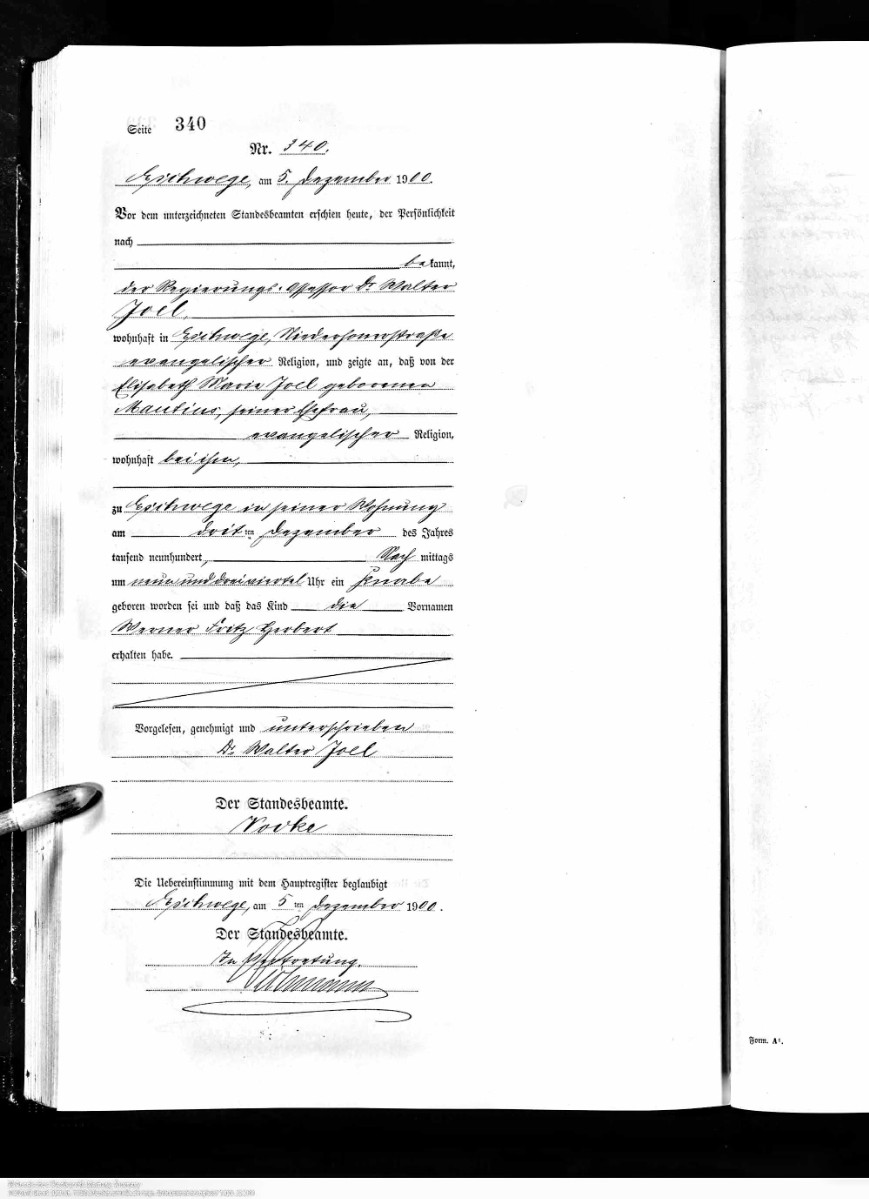 Seite 340
Nr. 340.
Eschwege, am 5. Dezember 1900.
Vor dem unterzeichneten Standesbeamten erschien heute, der Persönlichkeit
nach
bekannt,
der Regierungs-Assessor Dr Walter
Joel,
wohnhaft in Eschwege,
evangelischer Religion, und zeigte an, daß von der
Elisabeth Marie Joel geborenen
Mantius, seiner Ehefrau,
evangelischer Religion,
wohnhaft bei ihm,
zu Eschwege in seiner Wohnung
am dritten Dezember des Jahres
tausend neunhundert, Nachmittags
um neun und dreiviertel Uhr ein Knabe
geboren worden sei und daß das Kind die Vornamen
Werner Fritz Herbert
erhalten habe.
Vorgelesen, genehmigt und unterschrieben
Dr Walter Joel
Der Standesbeamte.
Vocke
Die Uebereinstimmung mit dem Hauptregister beglaubigt
Eschwege, am 5ten Dezember 1900.
Der Standesbeamte.
In Vertretung.
Form. A¹.